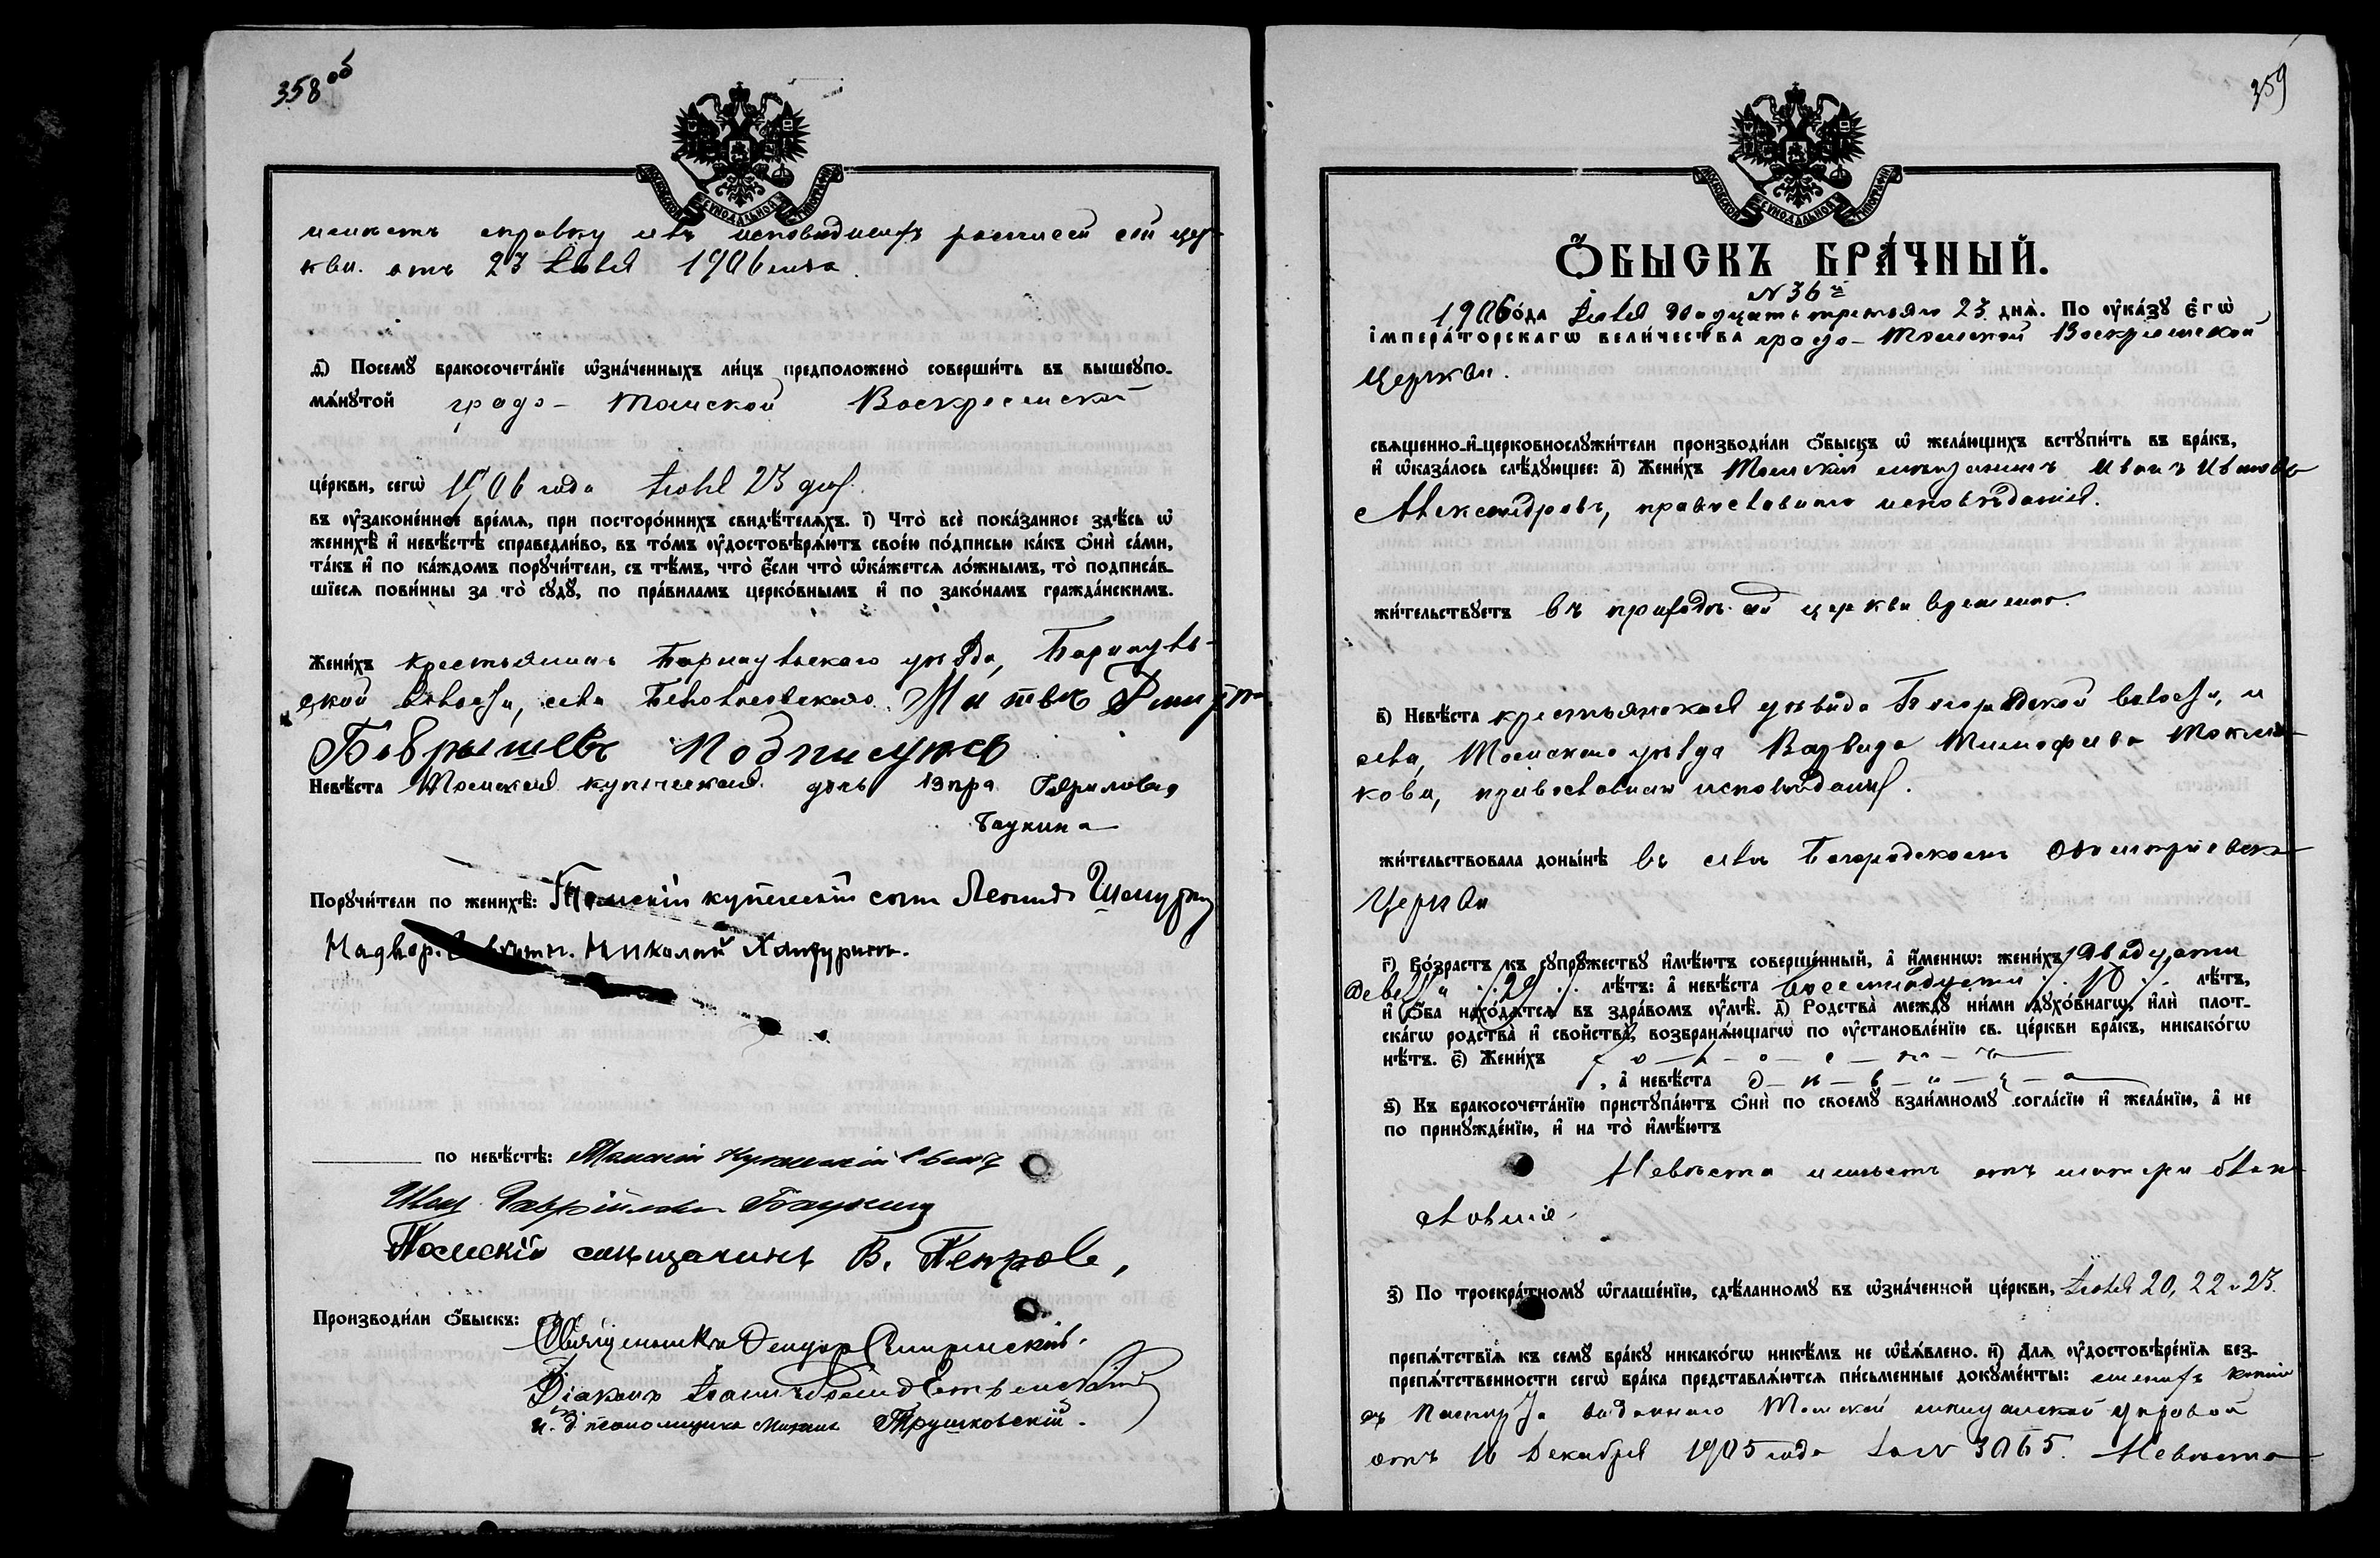 358 об
МОСКОВСКОЙ СѴНОДАЛЬНОЙ ТИПОГРАФІИ
имѣетъ справку изъ исповѣдныхъ росписей сей цер-
кви. отъ 23 Іюля 1906 года.
д҃і) Посемꙋ бракосочета́нїе ѡ҆зна́ченныхъ ли́цъ предположено̀ соверши́ть въ вышеꙋпо-
мѧ́нꙋтой градо-Томской Воскресенской
це́ркви, сегѡ̀ 1906 года Іюля 23 дня.
въ ᲂу҆законе́нное вре́мѧ, при посторо́ннихъ свидѣ́телѧхъ. і҃) Что̀ всѐ пока́занное здѣ́сь ѡ҆
женихѣ̀ и҆ невѣ́стѣ справедли́во, въ то́мъ ᲂу҆достовѣрѧ́ютъ свое́ю по́дписью ка́къ ѻ҆нѝ са́ми,
та́къ и҆ по ка́ждомъ порꙋчи́тели, съ тѣ́мъ, что̀ є҆́сли что̀ ѡ҆ка́жетсѧ ло́жнымъ, то̀ подписа́в-
шїесѧ пови́нны за то̀ сꙋдꙋ̀, по пра́виламъ церко́внымъ и҆ по зако́намъ гражда́нскимъ.
Жени́хъ крестьянинъ Барнаульскаго уѣзда, Барнауль-
ской волости, села
Бобрышевъ подписуюсь
Невѣ́ста Томская купеческая дочь Гавриловна
Баукина
Порꙋчи́тели по женихѣ̀: Томскій купеческій сынъ Леонидъ
Надвор. Николай
по невѣ́стѣ: Томскій купеческій сынъ
Иван Гаврииловъ Баукинъ
Томскій мѣщанинъ В. Петровъ,
Производи́ли ѻ҆́быскъ: Священникъ
Діаконъ Іоаннъ
и. д. псаломщика Михаилъ Трушковскій.
359
МОСКОВСКОЙ СѴНОДАЛЬНОЙ ТИПОГРАФІИ
Ѻ҆́БЫСКЪ БРА́ЧНЫЙ.
N 36й
1906 го́да Іюля двадцать третьяго 23 днѧ̀. По ᲂу҆ка́зꙋ є҆гѡ̀
і҆мпера́торскагѡ вели́чества градо-Томской Воскресенской
церкви.
свѧщенно-и҆-церковнослꙋжи́тели производи́ли ѻ҆́быскъ ѡ҆ жела́ющихъ встꙋпи́ть въ бра́къ,
и҆ ѡ҆каза́лось слѣ́дꙋющее: а҃) Жени́хъ Томскій мѣщанинъ Иванъ Ивановъ
Александровъ, православнаго исповѣданія.
жи́тельствꙋетъ въ приходѣ сей церкви временно.
в҃) Невѣ́ста крестьянская дѣвица Богородской волости, и
села, Томскаго уѣзда Варвара Тимофеева Токма-
кова, православнаго исповѣданія.
жи́тельствовала доны́нѣ въ селѣ Богородскомъ Одигитріевской
церкви
г҃) Во́зрастъ къ сꙋпрꙋ́жествꙋ и҆мѣ́ютъ соверше́нный, а҆ и҆́меннѡ: жени́хъ двадцати
девяти 29 лѣ́тъ: а҆ невѣ́ста восемнадцати 18 лѣ́тъ,
и҆ ѻ҆́ба нахо́дѧтсѧ въ здра́вомъ ᲂу҆мѣ̀. д҃) Родства̀ междꙋ ни́ми дꙋхо́внагѡ, и҆лѝ плот-
ска́гѡ родства̀ и҆ свойства̀, возбранѧ́ющагѡ по ᲂу҆становле́нїю св. це́ркви бра́къ, никако́гѡ
нѣ́тъ. є҃) Жени́хъ х-о-л-о-с-т-ъ
, а҆ невѣ́ста д-ѣ-в-и-ц-а
ѕ҃) Къ бракосочета́нїю пристꙋпа́ютъ ѻ҆нѝ по своемꙋ̀ взаи́мномꙋ согла́сїю и҆ жела́нїю, а҆ не
по принꙋжде́нїю, и҆ на то̀ и҆мѣ́ютъ
Невѣста имѣетъ отъ матери благо-
словеніе.
з҃) По троекра́тномꙋ ѡ҆глаше́нїю, сдѣ́ланномꙋ въ ѡ҆зна́ченной це́ркви, Іюля 20, 22 и 23.
препѧ́тствїѧ къ семꙋ̀ бра́кꙋ никако́гѡ никѣ́мъ не ѡ҆б̾ѧ́влено. и҃) Длѧ ᲂу҆достовѣре́нїѧ без-
препѧ́тственности сегѡ̀ бра́ка представлѧ́ютсѧ пи́сьменные докꙋме́нты: женихъ копію
съ паспорта выданнаго Томской мѣщанской управой
отъ 16 Декабря 1905 года за N 3065. Невѣста